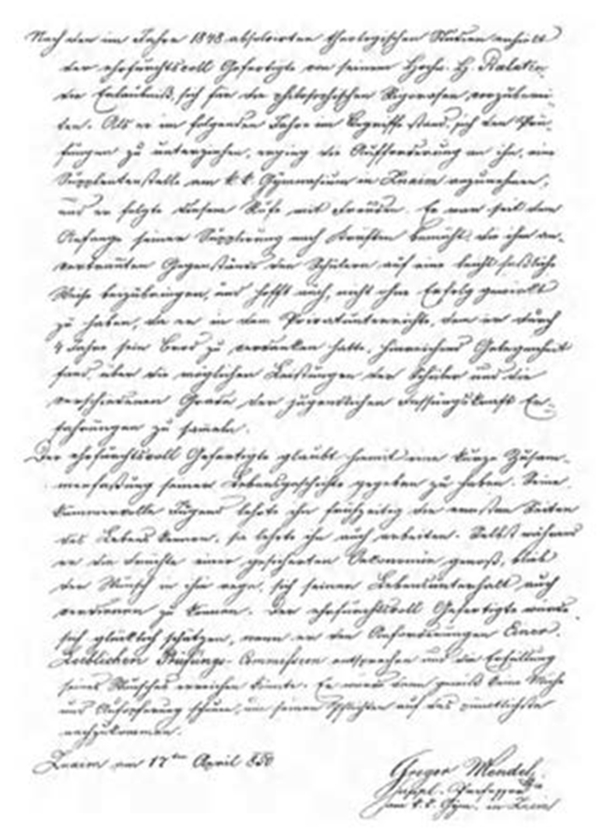 Nach den im Jahre 1848 absolvirten theologischen Studien erhielt
der ehrfurchtsvoll Gefertigte von seinem Hochw. H. Prälaten
die Erlaubniß, sich für die philosophischen Rigorosen vorzuberei-
ten. Als er im folgenden Jahre im Begriffe stand, sich den Prü-
fungen zu unterziehen, erging die Aufforderung an ihn, eine
Supplentenstelle am k. k. Gymnasium in Znaim anzunehmen,
und er folgte diesem Rufe mit Freuden. Er war seit dem
Anfange seiner Supplirung nach Kräften bemüht, die ihm an-
vertrauten Gegenstände den Schülern auf eine leicht faßliche
Weise beizubringen, und hofft auch, nicht ohne Erfolg gewirkt
zu haben, da er in dem Privatunterrichte, dem er durch
4 Jahre sein Brod zu verdanken hatte, hinreichend Gelegenheit
fand, über die möglichen Leistungen der Schüler und die
verschiedenen Grade der jugendlichen Fassungskraft Er-
fahrungen zu sammeln.
Der ehrfurchtsvoll Gefertigte glaubt hiemit eine kurze Zusam-
menfassung seiner Lebensgeschichte gegeben zu haben. Seine
kummervolle Jugend lehrte ihn frühzeitig die ernsten Seiten
des Lebens kennen, sie lehrte ihn auch arbeiten. Selbst während
er die Früchte einer gesicherten Oekonomie genoß, blieb
der Wunsch in ihm rege, sich seinen Lebensunterhalt auch
verdienen zu können. Der ehrfurchtsvoll Gefertigte würde
sich glücklich schätzen, wenn er den Anforderungen Einer
Löblichen Prüfungs-Commission entsprechen und die Erfüllung
seines Wunsches erreichen könnte. Er würde dann gewiß keine Mühe
und Aufopferung scheuen, um seinen Pflichten auf das pünktlichste
nachzukommen.
Znaim am 17ten April 850
Gregor Mendel
suppl. Professor
am k. k. Gym. in Znaim